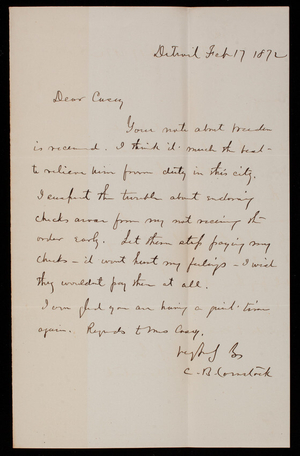 Detroit Feb 17 1872
Dear Casey
Your note about
is received. I think it much the best
to relieve him from duty in this city.
I the trouble about endorsing
checks arose from my not receiving the
order early. Let them stop paying my
checks - it wont hurt my feelings - I wish
they wouldn't pay them at all.
I am glad you are having a quiet time
again. Regards to Mrs Casey.
C. B. Comstock